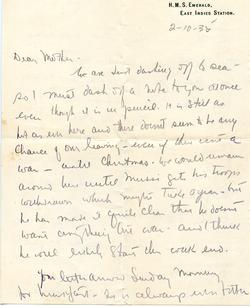 H.M.S. EMERALD,
EAST INDIES STATION.
2-10-35
Dear Mother -
We are just dashing off to sea -
so I must dash off a note to you at once
even though it is in pencil. It is still as
hot as ever here and there doesn't seem to be any
chance of our leaving - even if there isn't a
war - until Christmas. We would remain
around here until Musso gets his troops
withdrawn which might take ages - but
he has made it quite clear that he doesn't
want anything but war - and I think
he will start this week end.
You both arrived Sunday Morning
for